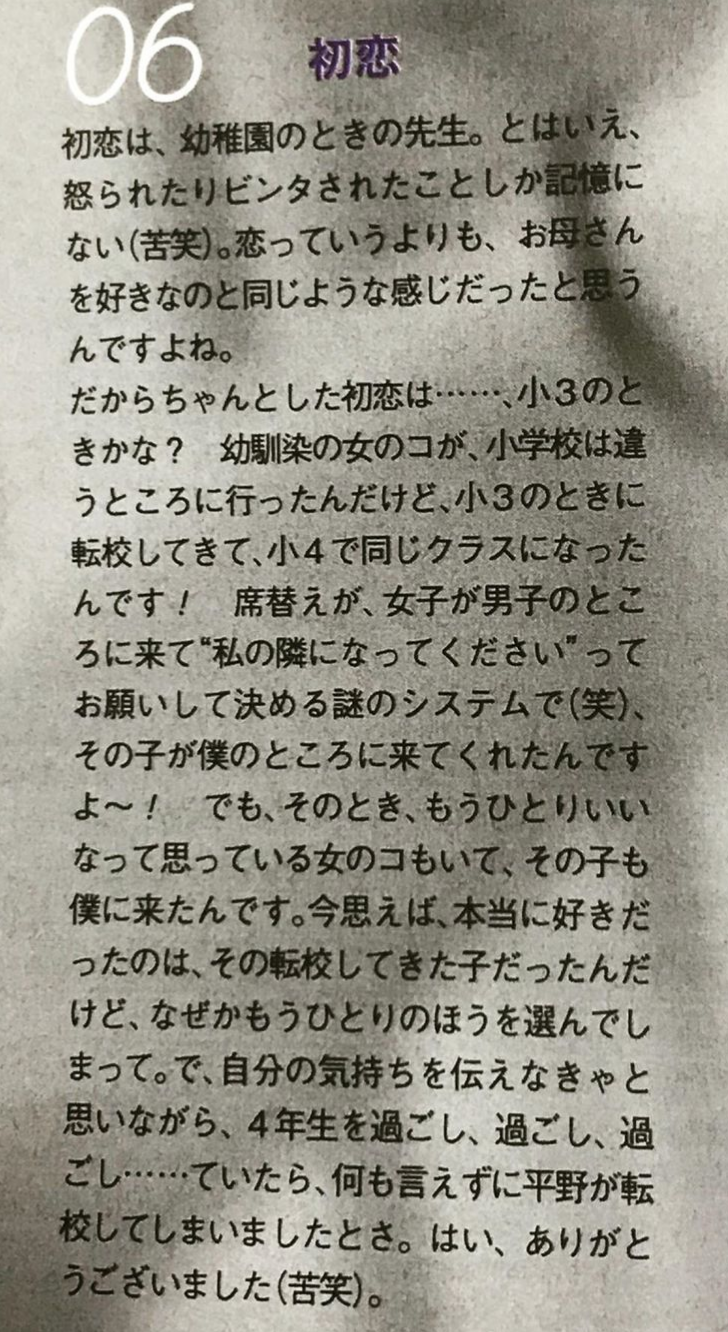 06
初恋
初恋は、幼稚園のときの先生。とはいえ、
怒られたりビンタされたことしか記憶に
ない(苦笑)。恋っていうよりも、お母さん
を好きなのと同じような感じだったと思う
んですよね。
だからちゃんとした初恋は……、小3のと
きかな？　幼馴染の女のコが、小学校は違
うところに行ったんだけど、小3のときに
転校してきて、小4で同じクラスになった
んです！　席替えが、女子が男子のとこ
ろに来て“私の隣になってください”って
お願いして決める謎のシステムで(笑)、
その子が僕のところに来てくれたんです
よ〜！　でも、そのとき、もうひとりいい
なって思っている女のコもいて、その子も
僕に来たんです。今思えば、本当に好きだ
ったのは、その転校してきた子だったんだ
けど、なぜかもうひとりのほうを選んでし
まって。で、自分の気持ちを伝えなきゃと
思いながら、4年生を過ごし、過ごし、過
ごし……ていたら、何も言えずに平野が転
校してしまいましたとさ。はい、ありがと
うございました(苦笑)。